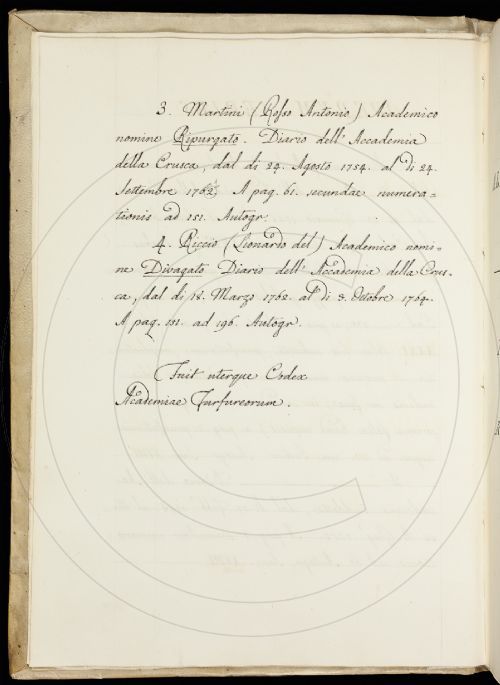 3. Martini (Rosso Antonio) Academico
nomine Ripurgato. Diario dell' Accademia
della Crusca, dal di 24. Agosto 1754. al di 24.
Settembre 1762, A pag. 61. secundae numera=
tionis ad 151. Autogr.
4. Riccio (Lionardo del) Academico nomi=
ne Divagato Diario dell' Accademia della Crus=
ca, dal di 18. Marzo 1762. al di 3. Ottobre 1764.
A pag. 151. ad 196. Autogr.
Fuit uterque Codex
Academiae Furfureorum.